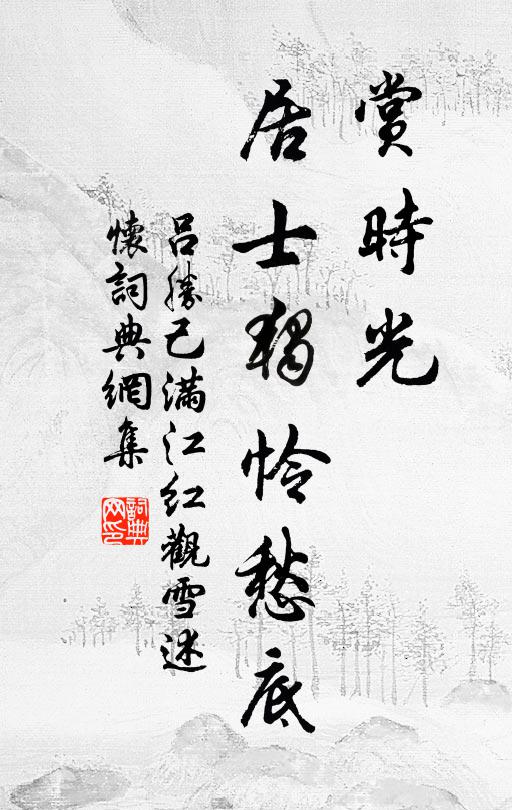 賞時光
居士獨怜愁底
呂勝己滿江紅觀雪述
懷詞典網集
詞典
网印